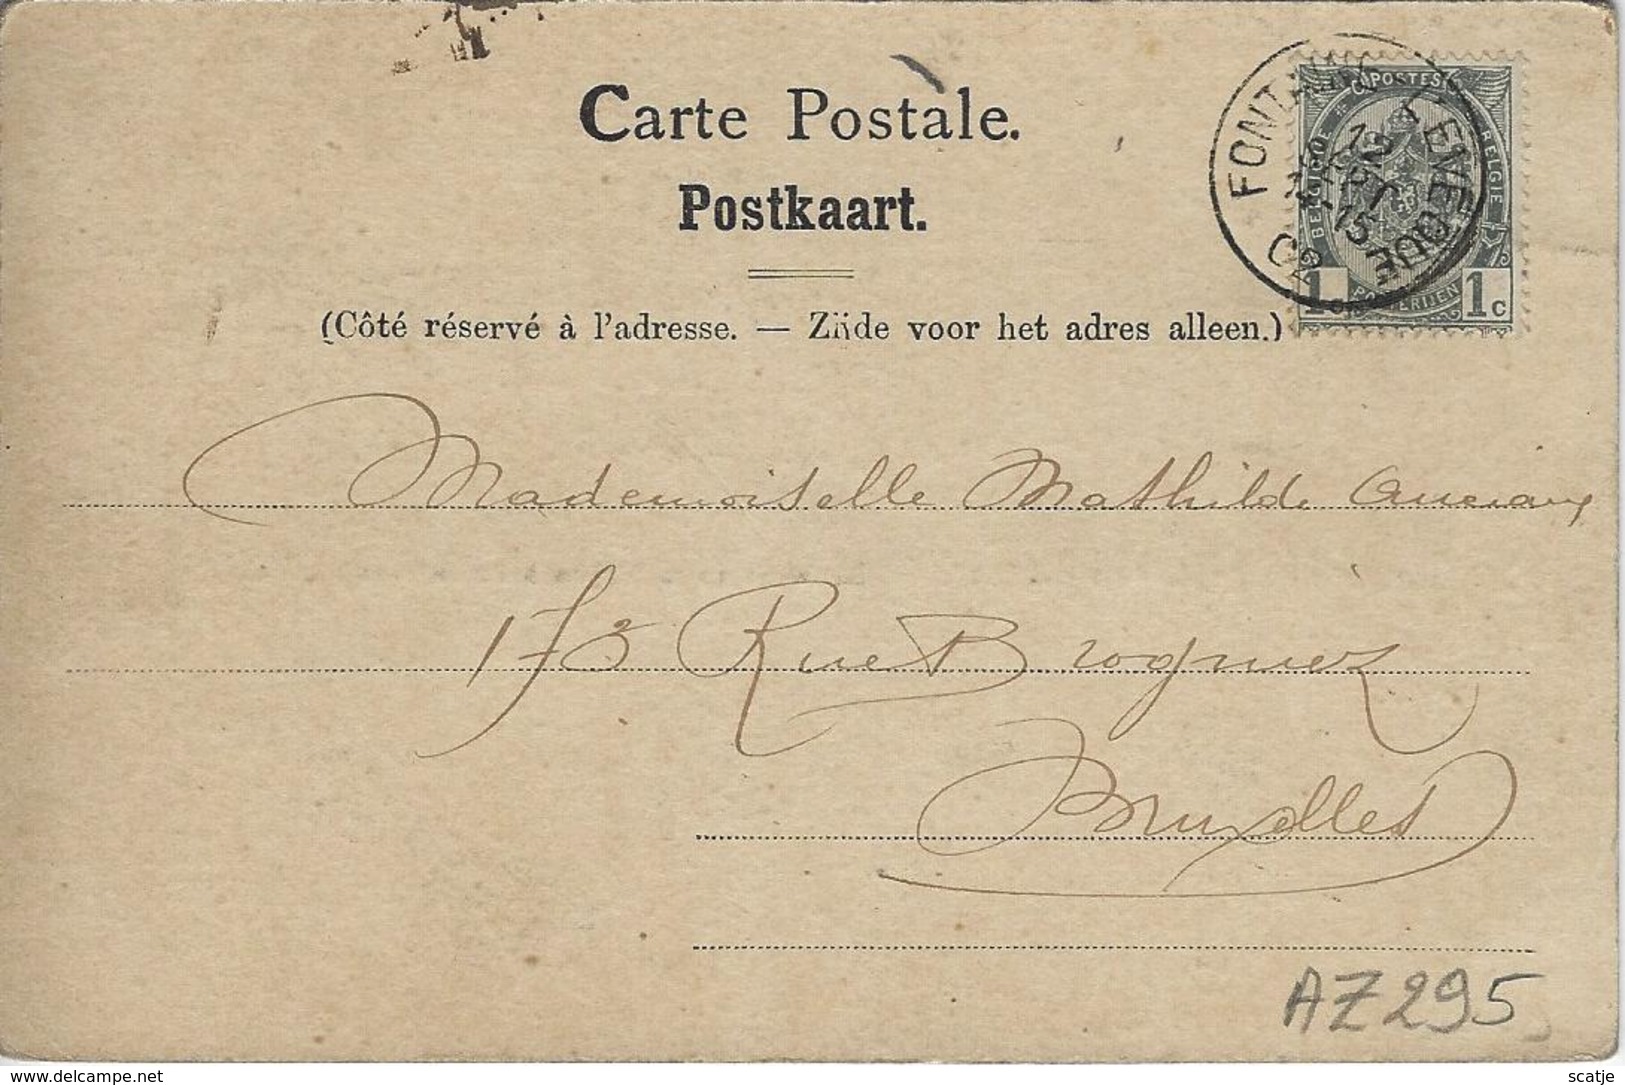 Carte Postale.
Postkaart.
(Côté réservé à l'adresse. — Zijde voor het adres alleen.)
BELGIQUE POSTES BELGIE
POSTERIJEN
1 1c
FONTAINE L'EVEQUE
12
15
Mademoiselle Mathilde
173 Rue Brogniez
Bruxelles
AZ295
PostcardFinder - delcampe.net
scatje